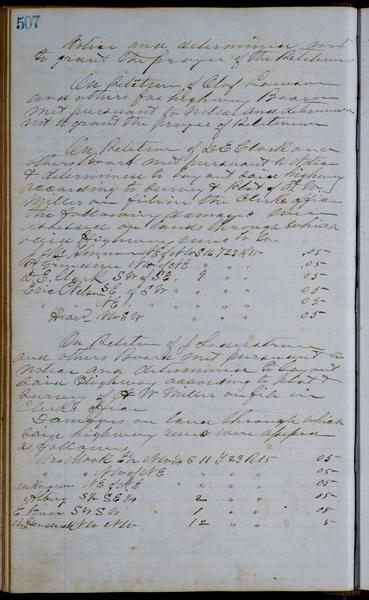 507
Notice and determined not
to grant the prayer of the Petitioners
On Petition of Olof Larson
and others for highway Board
met pursuant to notice and determined
not to grant the prayer of Petitioners
On Petition of D E Clark and
others Board met pursuant to Notice
& determined to lay out said highway
according to Survey & Plat of A W
Miller on file in the Clerks office
the following damages were
assessed on lands through which
said Highway runs to
NW 12 T 23 R 15 .05
H NW of NE " " " .05
D. E. Clark SW of S.E. " " .05
Eric Nelson SE of SW " " " .05
" " NE " " " .05
Heard NW SW " " " .05
On Petition of J
and others Board met pursuant to
Notice and determined to lay out
said Highway according to plat &
Survey of A W Miller on file in
Clerks office
Damages on land through which
said highway runs were assessed
as follows
Mrs Mook E 1/2 NW 1/4 S 11 T 23 R 15 .05
" NW of NE " " " .05
unknown NE of NE " " " .05
SE 2 " " .05
E. SW SW 1 " " .05
NW NW 12 " " 5